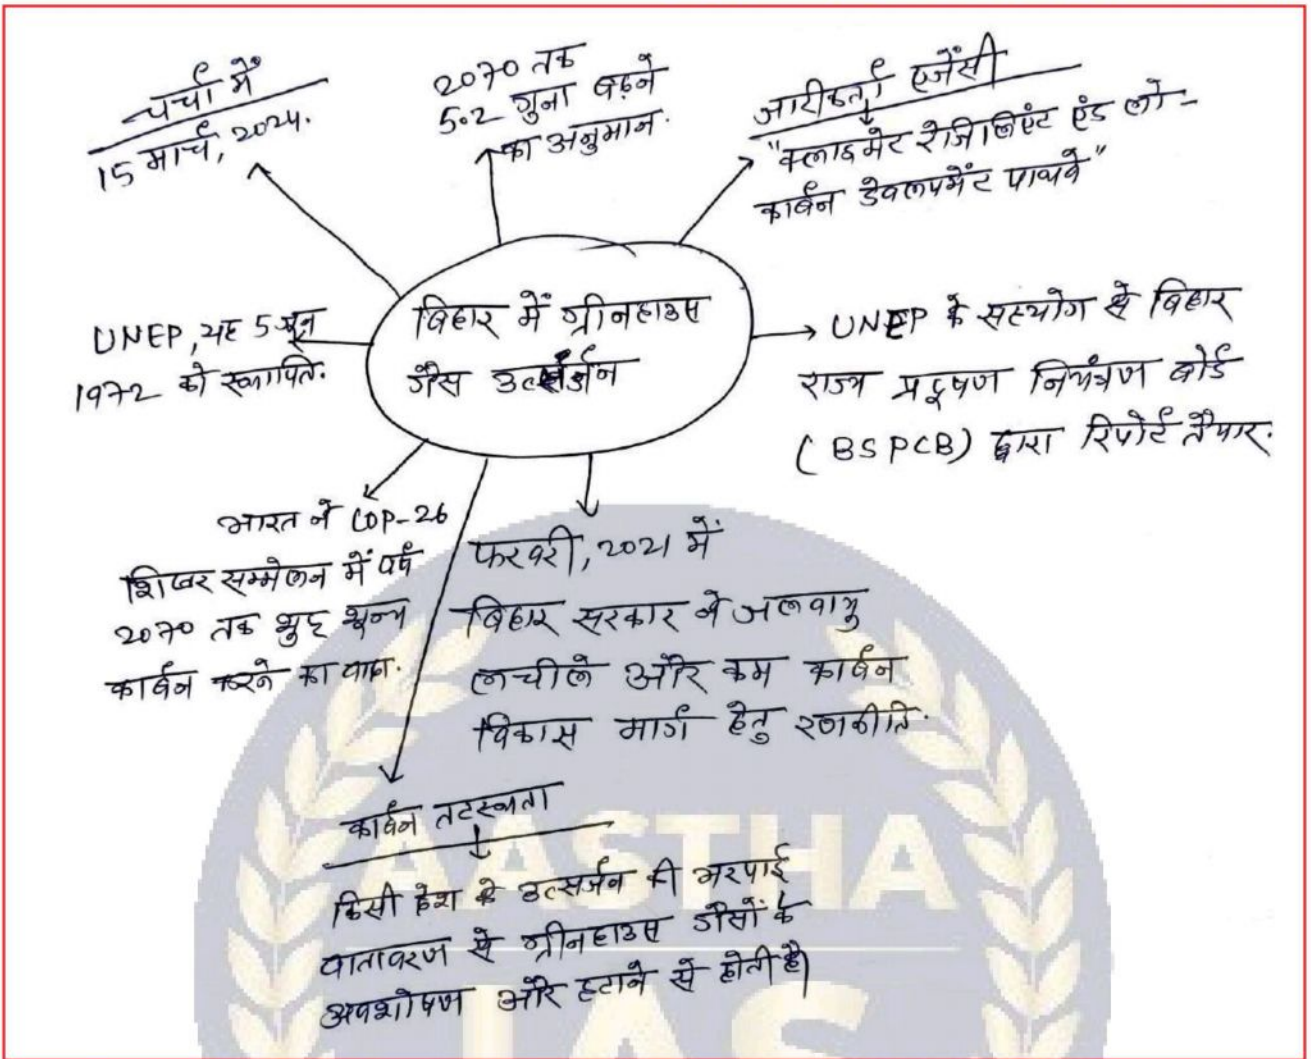 चर्चा में
15 मार्च, 2024.
2070 तक
5.2 गुना बढ़ने
का अनुमान.
जारीकर्ता एजेंसी
"क्लाइमेट रेजिलिएंट एंड लो-
कार्बन डेवलपमेंट पाथवे"
बिहार में ग्रीनहाउस
गैस उत्सर्जन
UNEP, यह 5 जून
1972 को स्थापित.
UNEP के सहयोग से बिहार
राज्य प्रदूषण नियंत्रण बोर्ड
(BSPCB) द्वारा रिपोर्ट तैयार.
भारत ने COP-26
शिखर सम्मेलन में वर्ष
2070 तक शुद्ध शून्य
कार्बन करने का वादा.
फरवरी, 2021 में
बिहार सरकार ने जलवायु
लचीले और कम कार्बन
विकास मार्ग हेतु रणनीति.
कार्बन तटस्थता
किसी देश के उत्सर्जन की भरपाई
वातावरण से ग्रीनहाउस गैसों के
अवशोषण और हटाने से होती है।
AASTHA
IAS